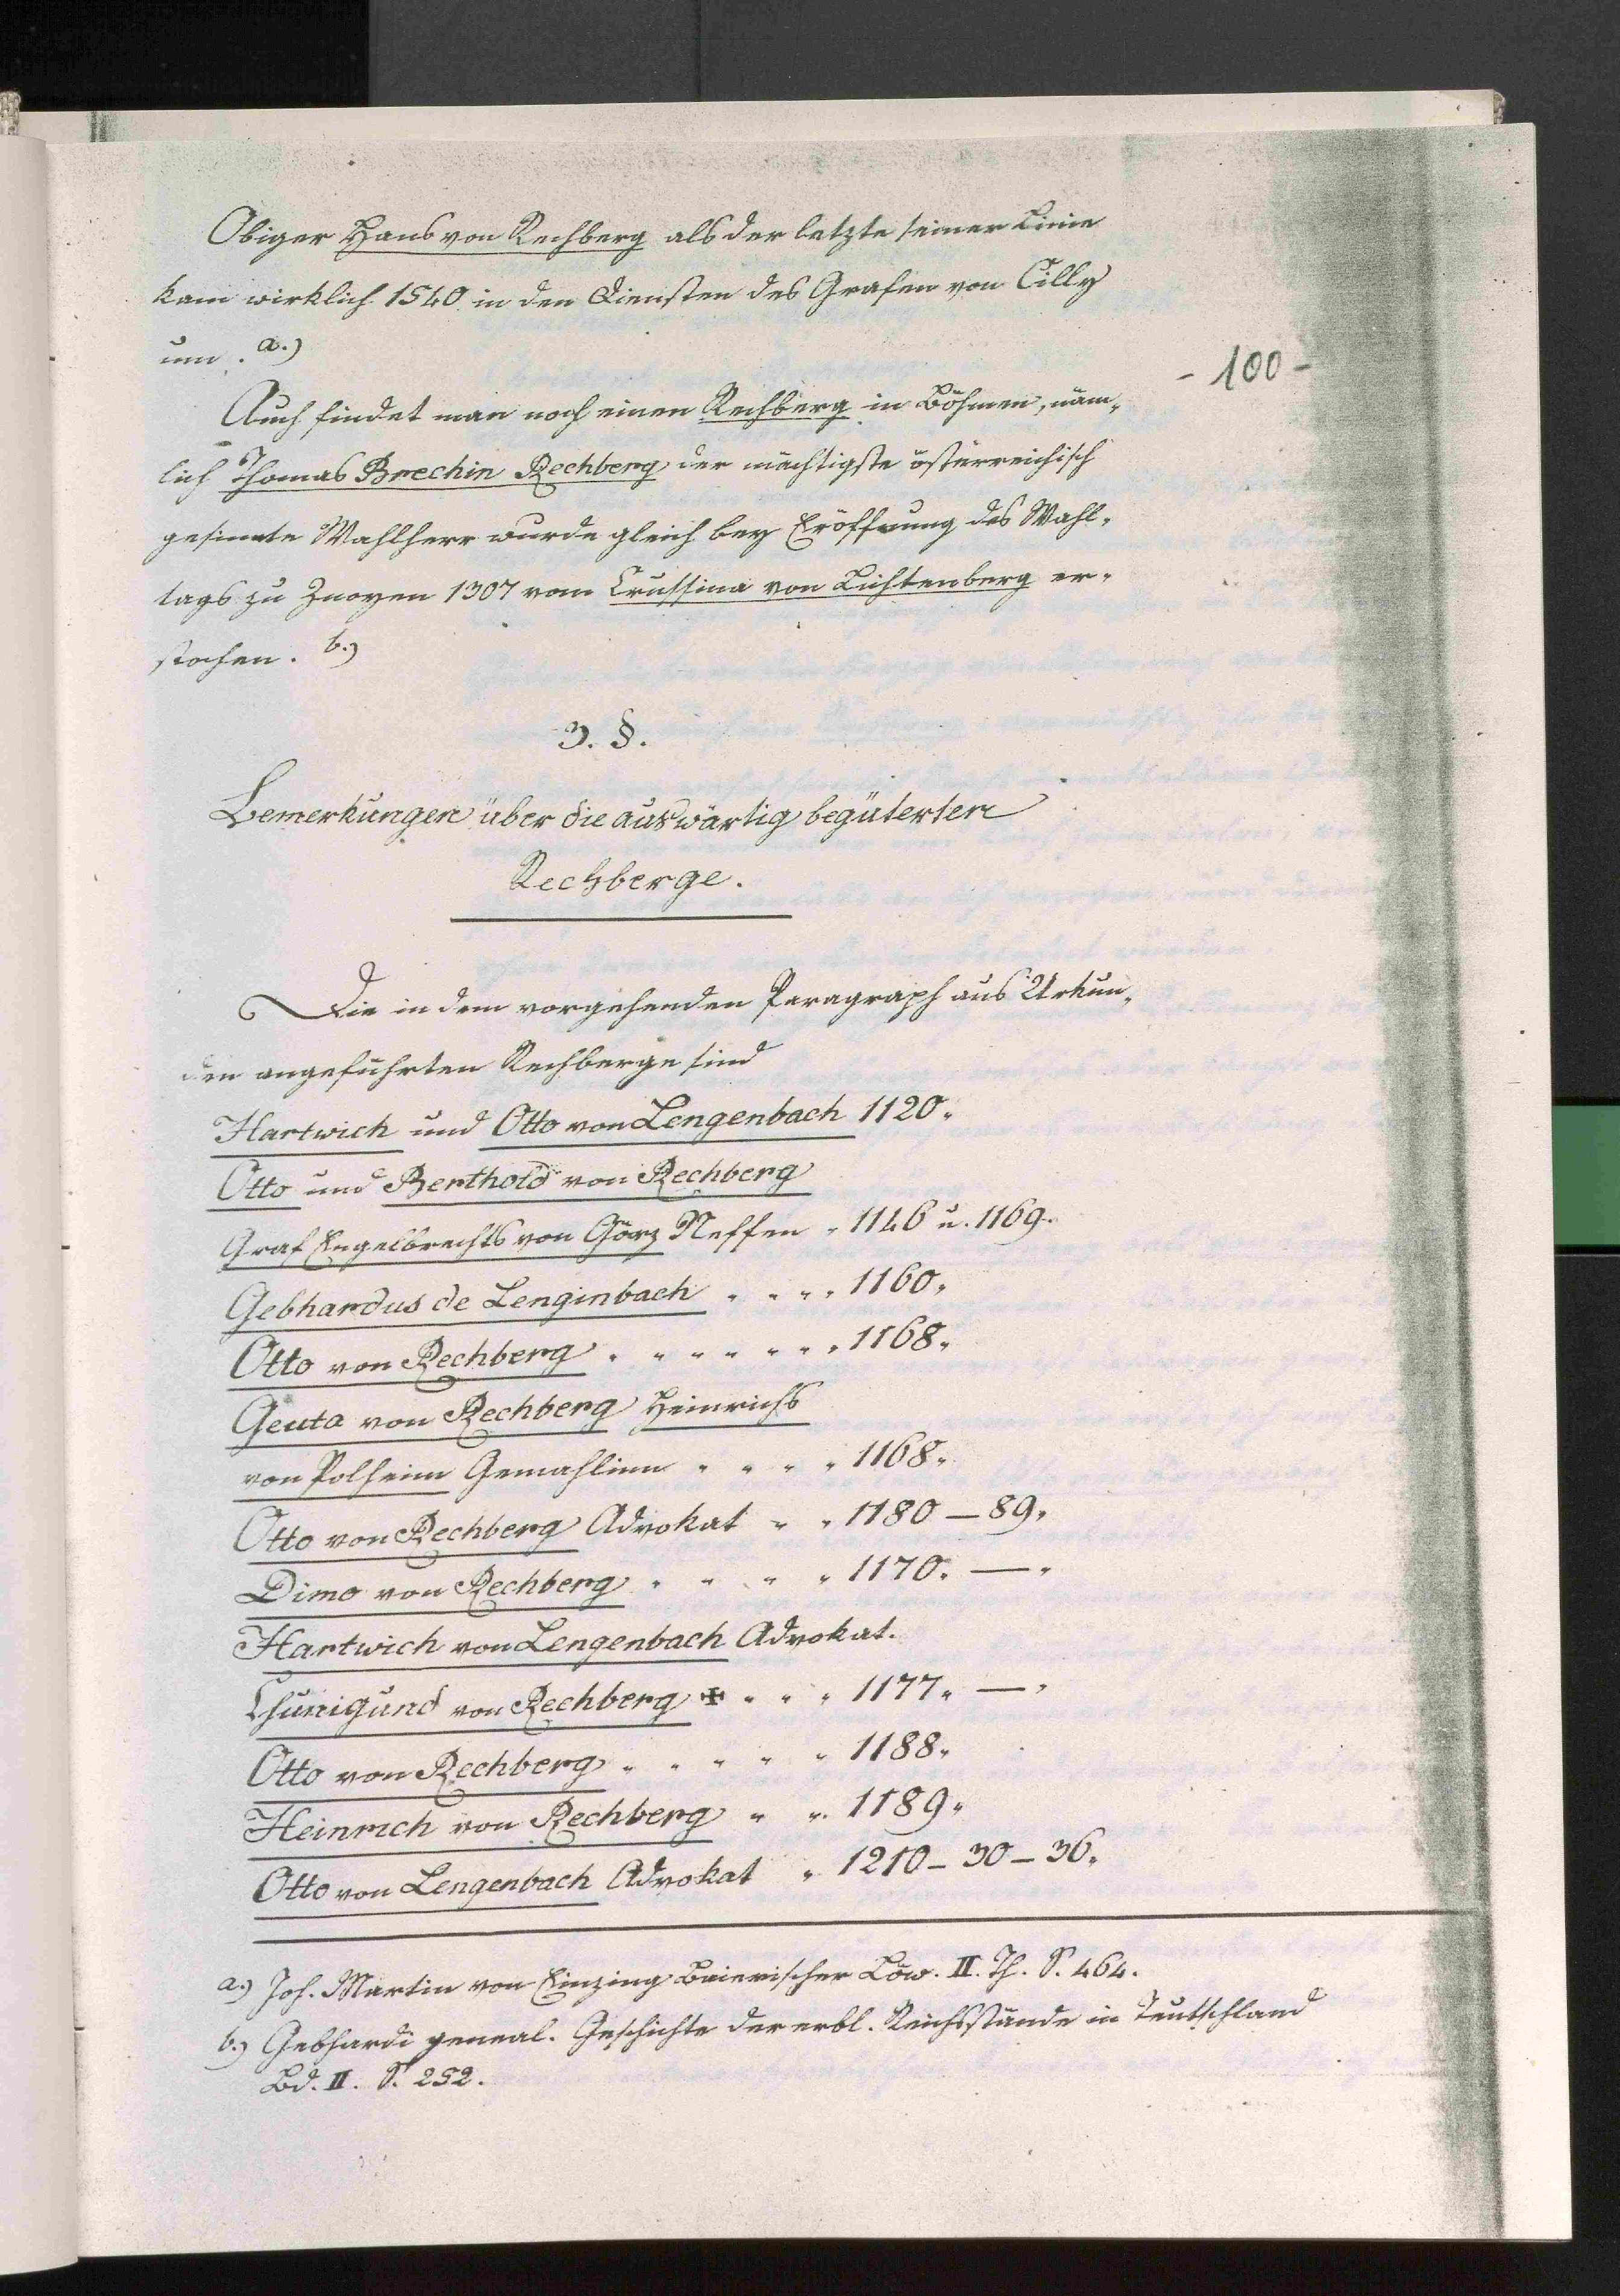 Obiger Hans von Rechberg als der letzte seiner Linie
kam wirklich 1540 in den Diensten des Grafen von Cilly
um. a.)
- 100 -
Auch findet man noch einen Rechberg in Böhmen, näm-
lich Thomas Brechin Rechberg der mächtigste österreichisch
gesinnte Wahlherr wurde gleich bey Eröffnung des Wahl-
tags zu Znoyen 1307 vom Crussina von Lichtenberg er-
stochen. b.)
3. §.
Bemerkungen über die auswärtig begüterten
Rechberge.
Die in dem vorgehenden Paragraph aus Urkun-
den angeführten Rechberge sind
Hartwich und Otto von Lengenbach 1120.
Otto und Berthold von Rechberg
Graf Engelbrechts von Görz Neffen . 1146 u. 1169.
Gebhardus de Lenginbach . . . . 1160.
Otto von Rechberg . . . . . . . 1168.
Geuta von Rechberg Heinrichs
von Polheim Gemahlinn . . . . 1168.
Otto von Rechberg Advokat . . 1180 – 89.
Dimo von Rechberg . . . . 1170. — .
Hartwich von Lengenbach Advokat.
Chunigund von Rechberg ✠ . . . 1177. — .
Otto von Rechberg . . . . . 1188.
Heinrich von Rechberg . . 1189.
Otto von Lengenbach Advokat . 1210 – 30 – 36.
a.) Joh. Martin von Einzing Baierischer Löw. II. Th. S. 464.
b.) Gebhardi geneal. Geschichte der erbl. Reichsstände in Teutschland
Bd. II. S. 252.